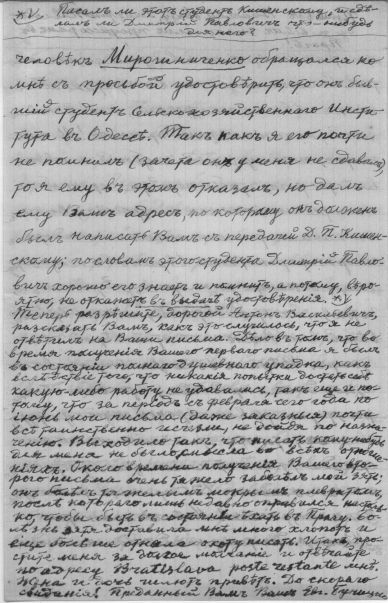 *V Писалъ ли этотъ студентъ Кишенскому, и сдѣ-
лалъ ли Дмитрій Павловичъ что-нибудь
для него?
человѣкъ Мирошниченко обращался ко
мнѣ съ просьбой удостовѣрить, что онъ быв-
шій студентъ Сельскохозяйственнаго Инсти-
тута въ Одессѣ. Такъ какъ я его почти
не помнилъ (зачета онъ у меня не сдавалъ),
то я ему въ этомъ отказалъ, но далъ
ему Вашъ адресъ, по которому онъ долженъ
былъ написать Вамъ съ передачей Д. П. Кишен-
скому; по словамъ этого студента Дмитрій Павло-
вичъ хорошо его знаетъ и помнитъ, а потому, вѣро-
ятно, не откажетъ въ выдачѣ удостовѣренія. *V
Теперь разрѣшите, дорогой Антонъ Васильевичъ,
разсказать Вамъ, какъ это случилось, что я не
отвѣтилъ на Ваши письма. Дѣло въ томъ, что во
время полученія Вашего перваго письма я былъ
въ состояніи полнаго душевнаго упадка, какъ
вслѣдствіе того, что никакія попытки достать
какую-либо работу не удавались, такъ еще и по-
тому, что за періодъ съ февраля сего года по
мои письма (даже заказныя) почти
всѣ исчезли, не дойдя по назна-
ченію. Выходило такъ, что писать кому-нибудь
для меня не было во всѣхъ отноше-
ніяхъ. Около времени полученія Вашего вто-
рого письма очень тяжело заболѣлъ мой зять;
онъ болѣлъ тяжелымъ мокрымъ плевритомъ,
послѣ котораго лишь недавно оправился насколь-
ко, чтобы быть въ состояніи ѣхать въ Прагу. Бо-
лѣзнь зятя доставила мнѣ много хлопотъ и
еще больше отняла охоту писать. Итакъ, про-
стите меня за долгое молчаніе и отвѣчайте
по адресу Bratislava poste restante мнѣ.
Жена и дочь шлютъ привѣтъ. До скораго
свиданія! Преданный Вамъ